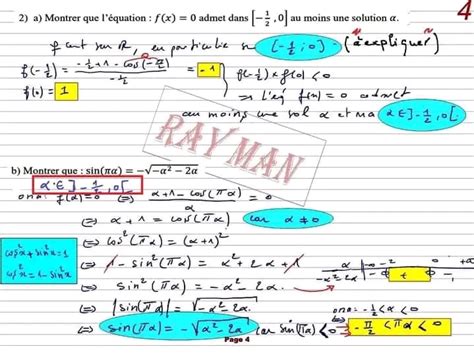 4
2) a) Montrer que l'équation : f(x) = 0 admet dans [-1/2 , 0] au moins une solution α.
f cont sur ℝ, en particulier sur [-1/2 ; 0] - (à expliquer)
f(-1/2) = (-1/2 + 1 - cos(-π/2)) / (-1/2) = -1
f(0) = 1
f(-1/2) × f(0) < 0
⇒ l'éq f(x) = 0 admet
au moins une sol α et α ∈ ]-1/2, 0[.
RAY MAN
b) Montrer que : sin(πα) = -√(-α² - 2α)
α ∈ ]-1/2, 0[
on a : f(α) = 0 ⇔ (α + 1 - cos(πα)) / α = 0
⇔ α + 1 = cos(πα) car α ≠ 0
⇔ cos²(πα) = (α+1)²
cos²x + sin²x = 1
cos²x = 1 - sin²x
⇔ 1 - sin²(πα) = α² + 2α + 1
⇔ sin²(πα) = -α² - 2α
α -∞ -2 0 +∞
-α² - 2α - 0 + 0 -
⇔ |sin(πα)| = √(-α² - 2α)
on a : -1/2 < α < 0
⇔ sin(πα) = -√(-α² - 2α) car sin(πα) < 0 ⇐ -π/2 < πα < 0
Page 4